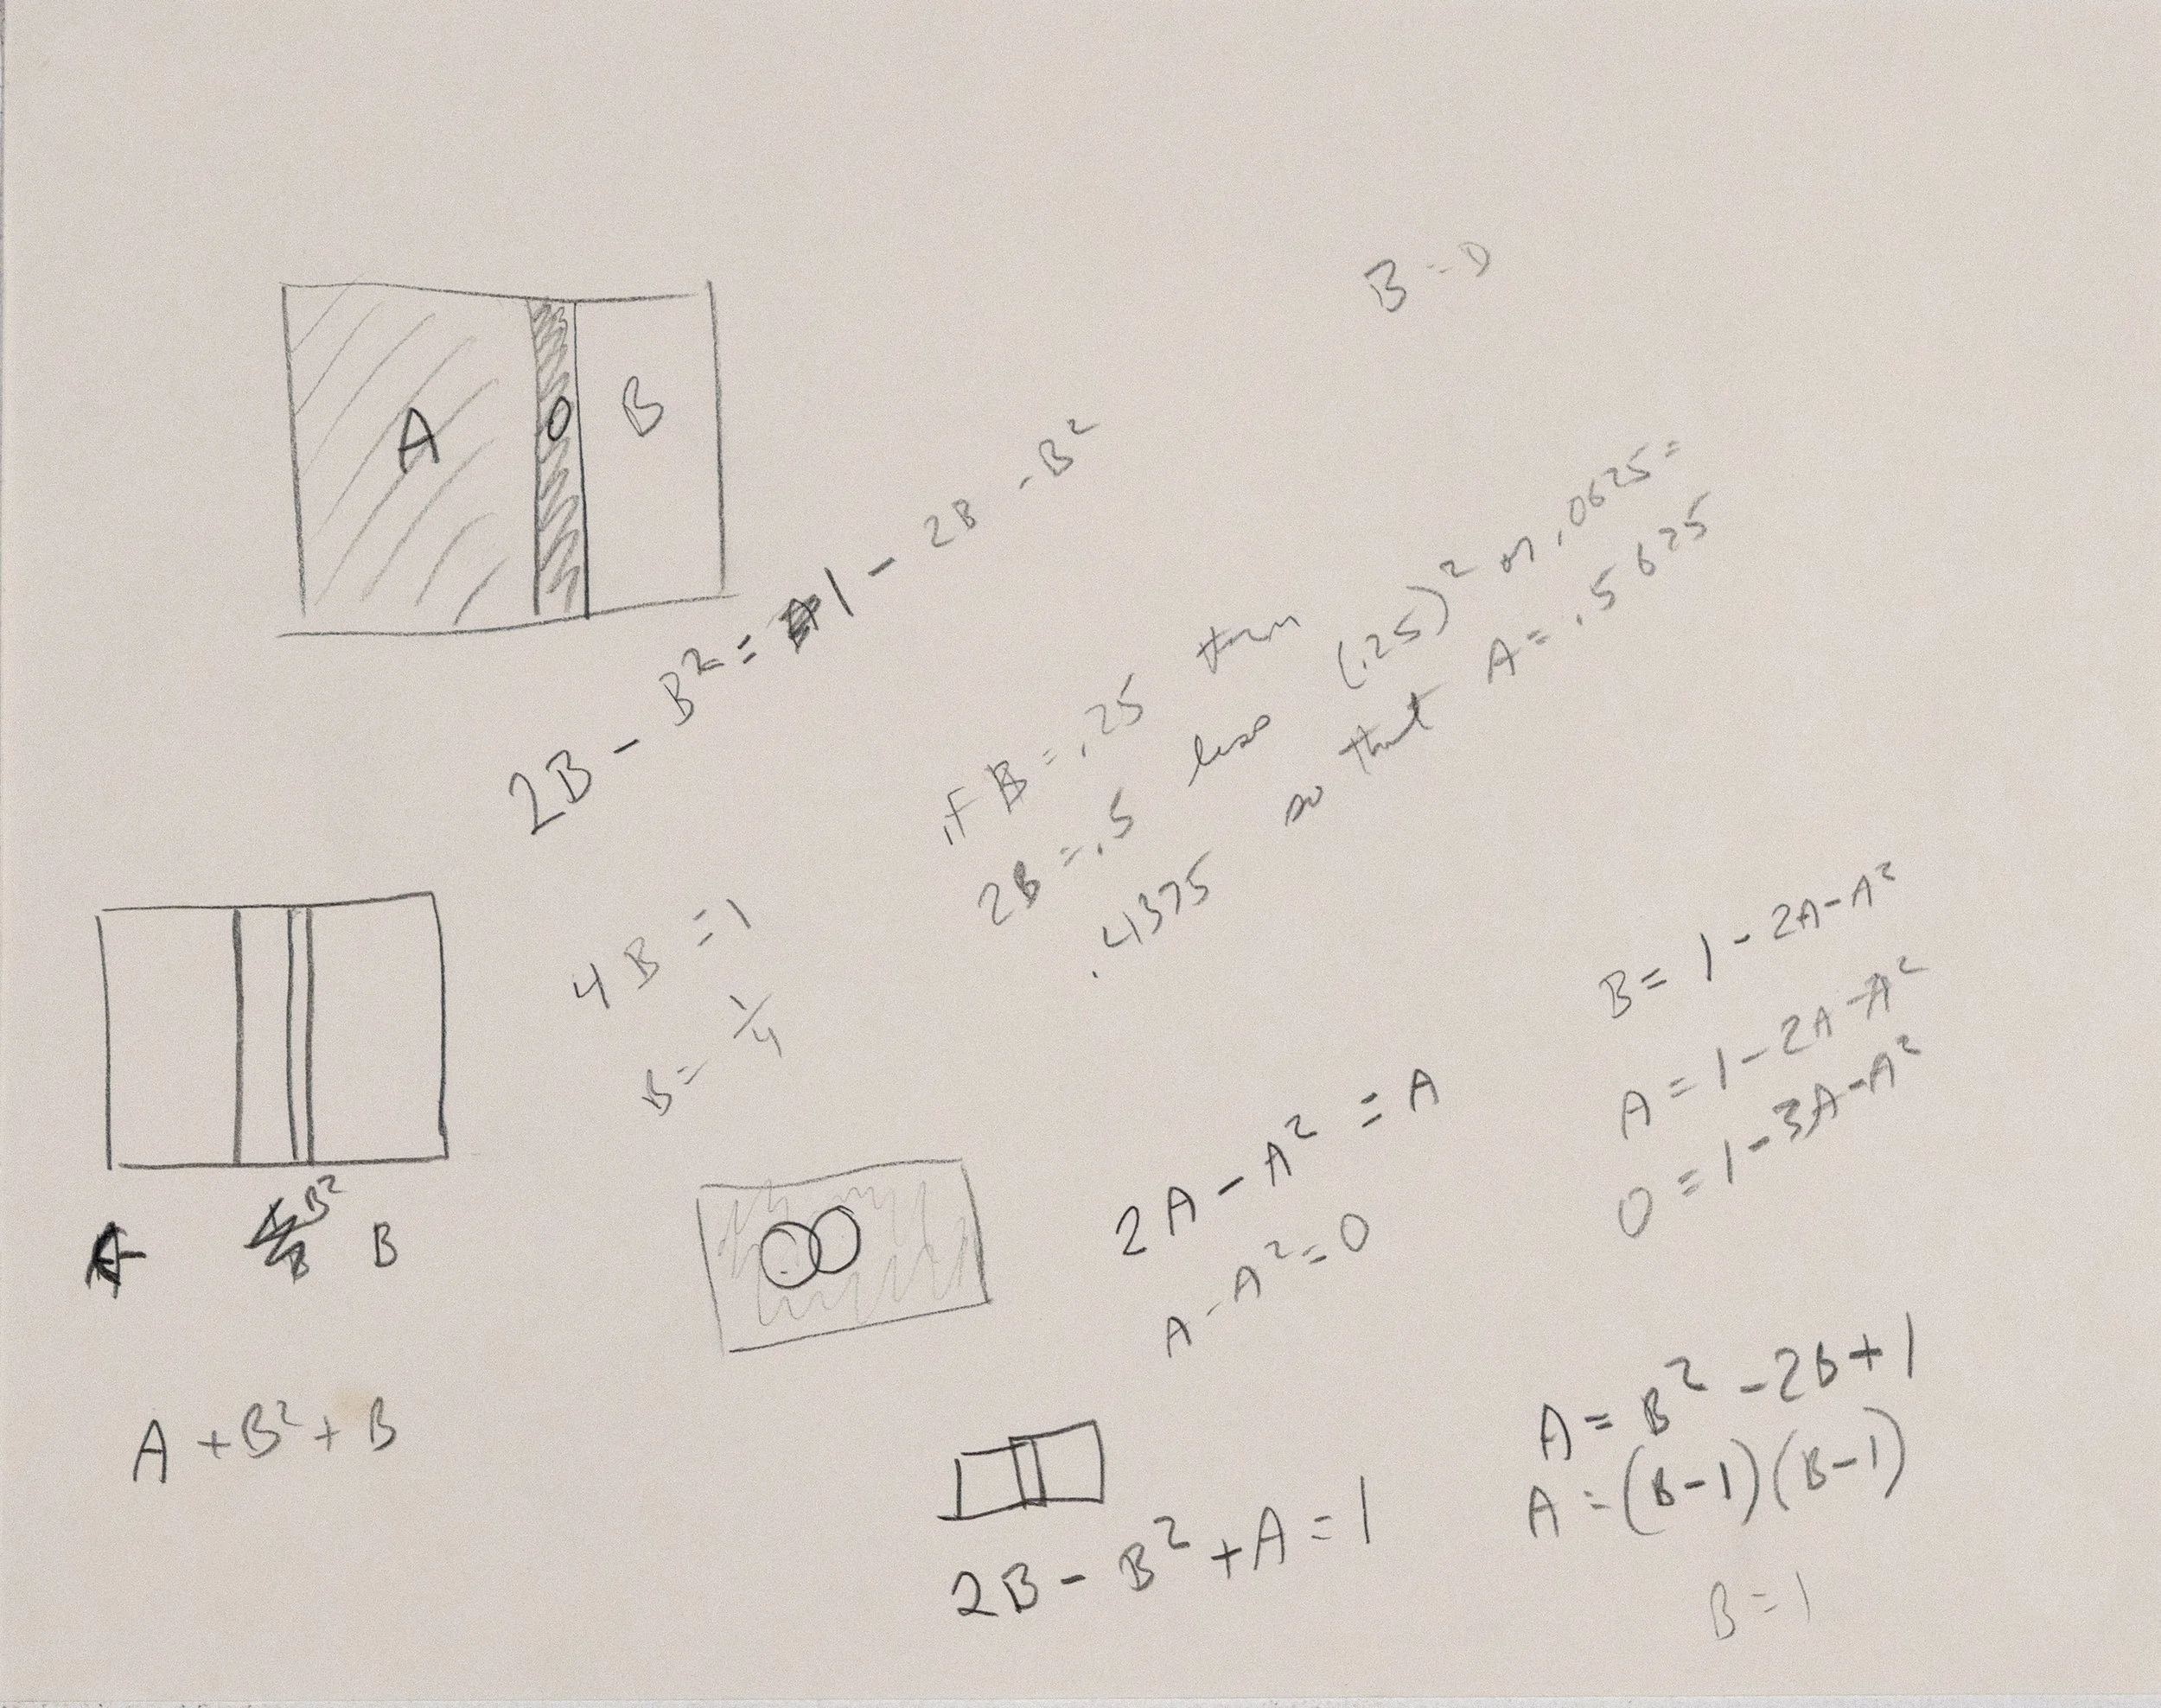 B = 0
A O B
2B - B² = 1 - 2B - B²
if B = .25 then
2B = .5 less (.25)² or .0625 =
.4375 so that A = .5625
4B = 1
B = 1/4
B²
B
A + B² + B
B = 1 - 2A - A²
A = 1 - 2A - A²
0 = 1 - 3A - A²
2A - A² = A
A - A² = 0
2B - B² + A = 1
A = B² - 2B + 1
A = (B-1)(B-1)
B = 1